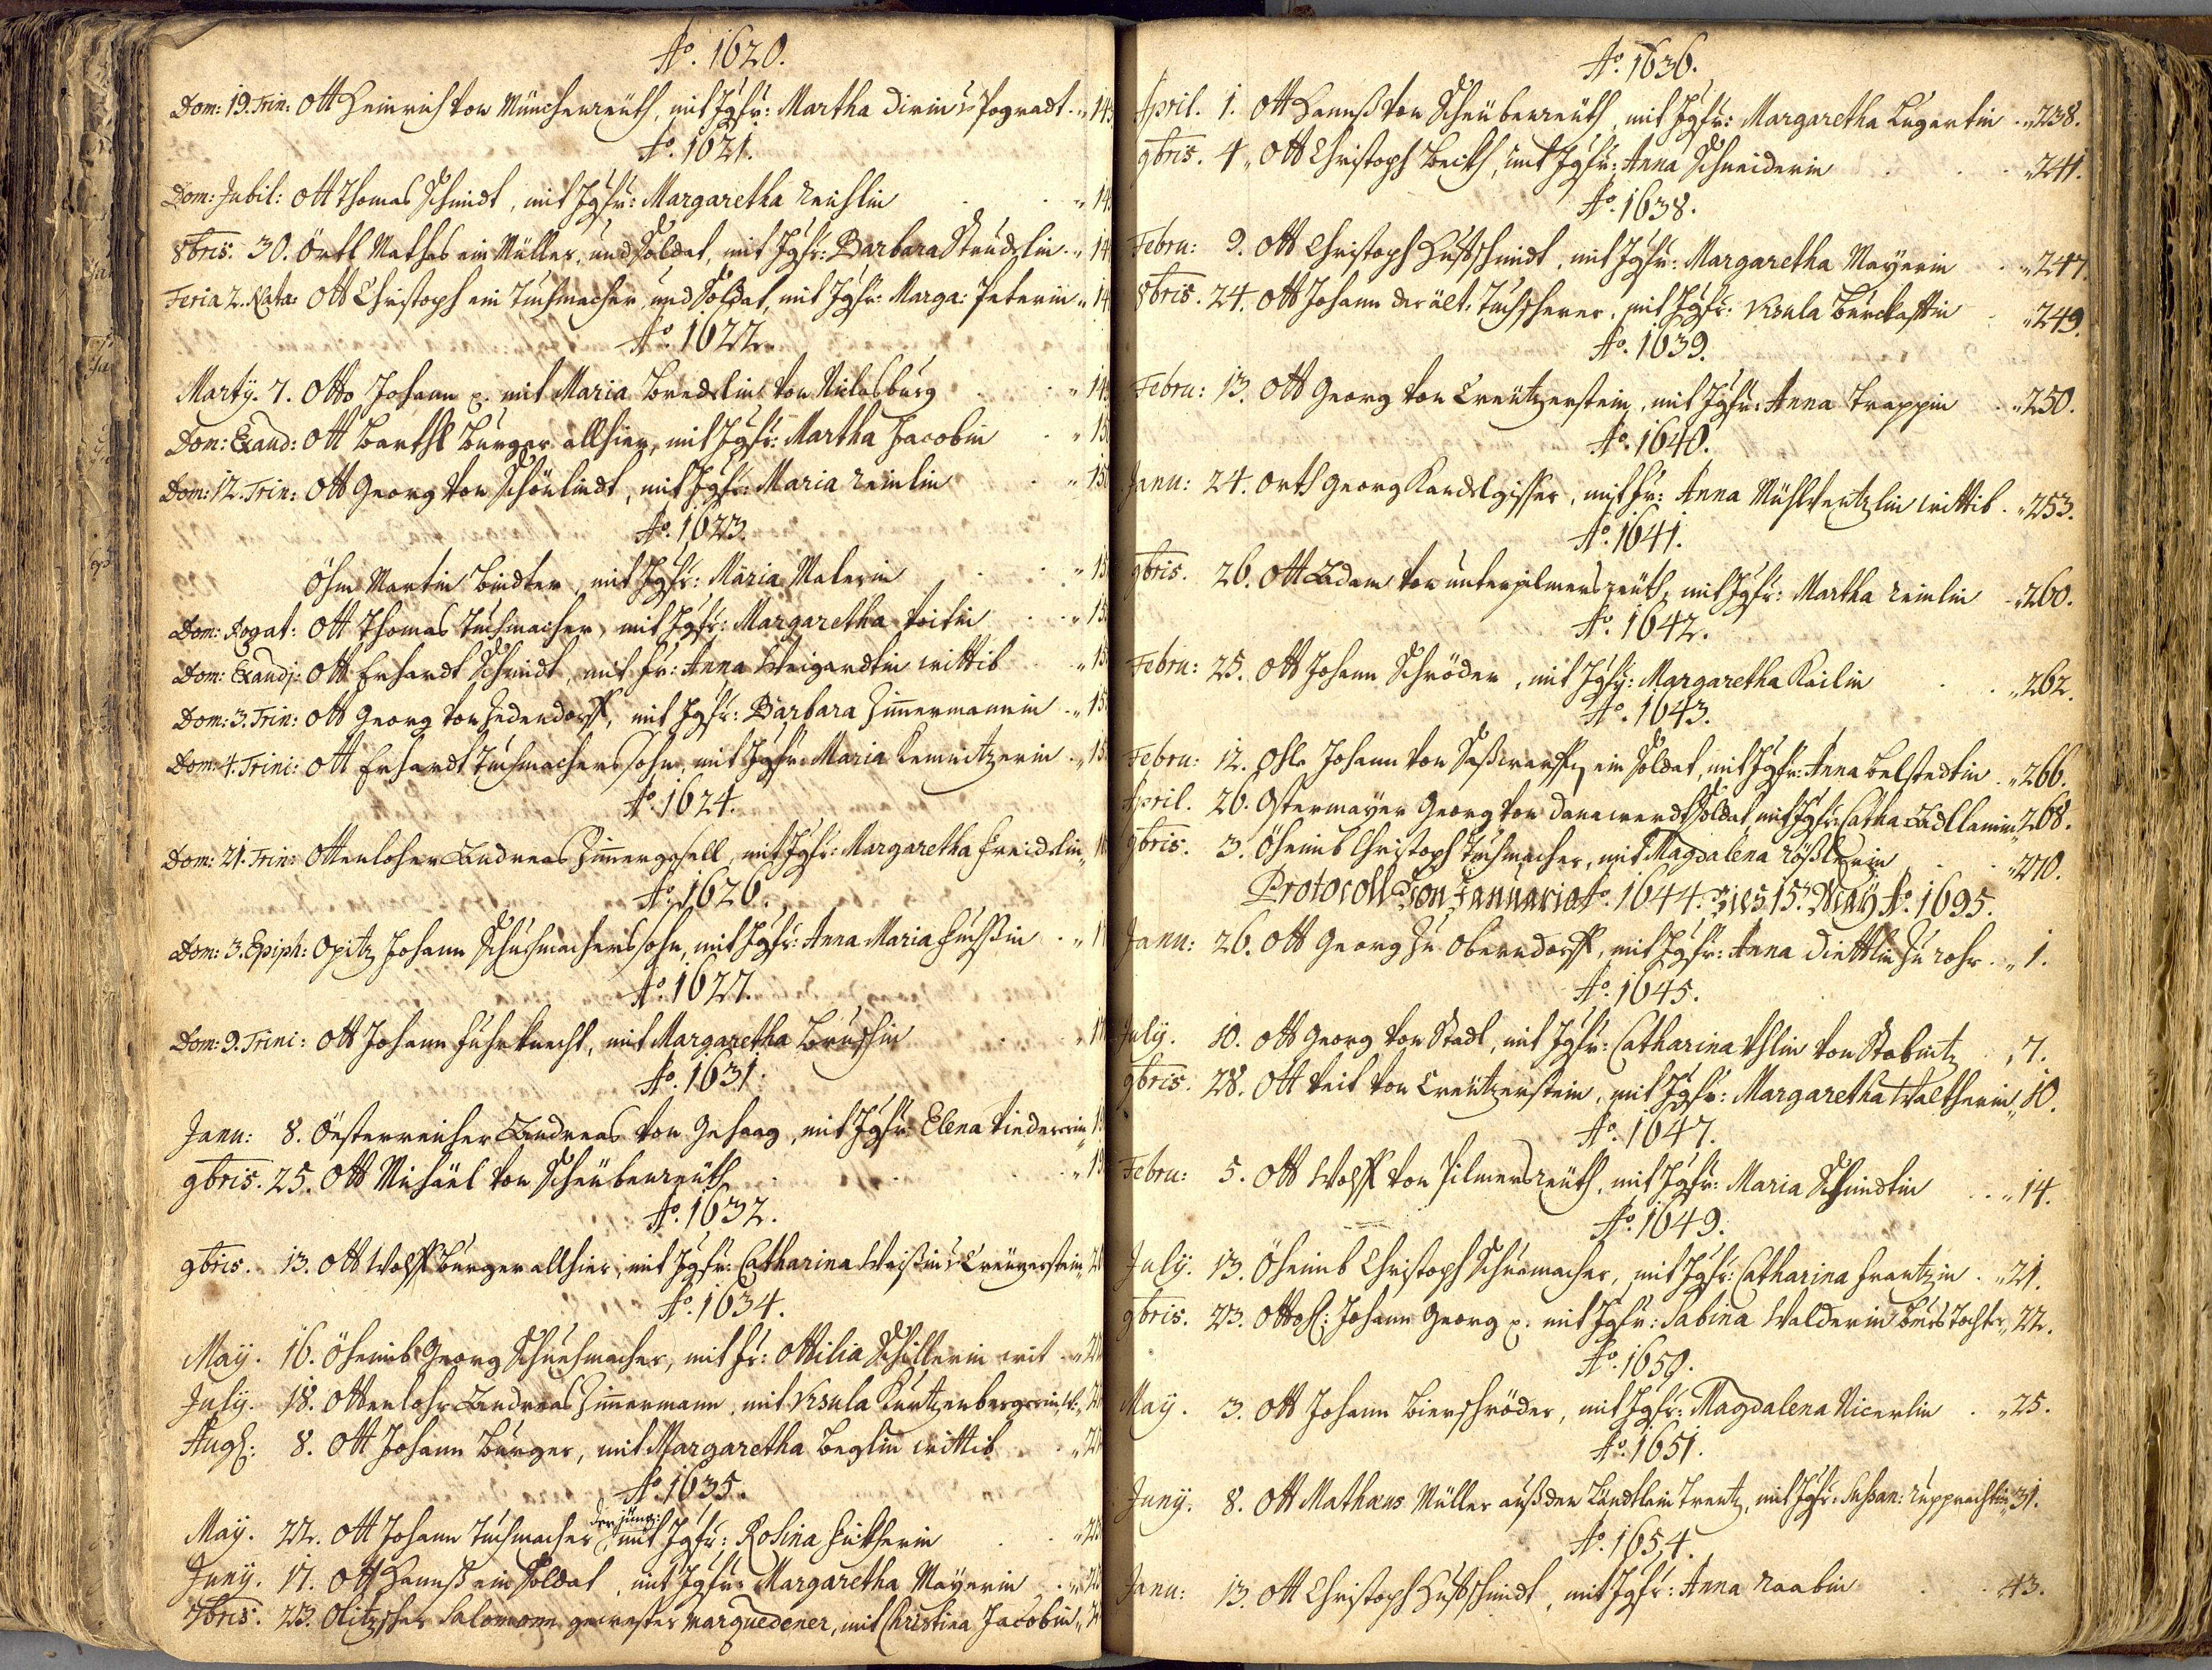 Ao. 1620.
Dom: 19. Trin: Ott Heinrich von Münchenreuth, mit Jgfr: Martha Dirin v Pograd. „ 14
Ao. 1621.
Dom: Jubil: Ott Thomas Schmidt, mit Jgfr: Margaretha „ 14
8bris. 30. Örtl Mathes ein Müller, und Soldat, mit Jgfr: Barbara „ 14
Feria 2. Nata: Ott Christoph ein Tuchmacher und Soldat, mit Jgfr: Marga: Peterin „ 14
Ao. 1622.
Martÿ. 7. Otto Johann p. mit Maria von Niclasburg „ 14
Dom: Exaud: Ott Barthl Burger allhier, mit Jgfr: Martha Jacobin „ 15
Dom: 12. Trin: Ott Georg von Schönlindt, mit Jgfr: Maria „ 150
Ao. 1623.
Öhm Martin Bindter, mit Jgfr: Maria Malerin „ 15
Dom: Rogat: Ott Thomas Tuchmacher, mit Jgfr: Margaretha Voitin „ 15
Dom: Exaudj: Ott Erhardt Schmidt, mit Fr: Anna Weigardtin wittib „ 15
Dom: 3. Trin: Ott Georg von Zedendorff, mit Jgfr: Barbara Zimermannin „ 15
Dom: 4. Trini: Ott Erhardt Tuchmachers sohn, mit Jgfr: Maria Kemnitzerin „ 15
Ao. 1624.
Dom: 21. Trin: Ottenloher Andreas Zimergesell, mit Jgfr: Margaretha Freidlin „
Ao. 1626.
Dom: 3. Epiph: Opitz Johann Schuchmachers sohn, mit Jgfr: Anna Maria Fuchßin „ 1
Ao. 1627.
Dom: 9. Trini: Ott Johann Fuhrknecht, mit Margaretha „ 1
Ao. 1631.
Janu: 8. Öesterreicher Andreas von Gehaag, mit Jgfr: Elena „ 1
9bris. 25. Ott Michäel von Scheübenreüth „ 19
Ao. 1632.
9bris. 13. Ott Wolff Burger allhier, mit Jgfr: Catharina Weißin v Creützerstein „ 2
Ao. 1634.
Maÿ. 16. Öheimb Georg Schuchmacher, mit Fr: Ottilia Schillerin wit „ 2
Julÿ. 18. Ottenlohr Andreas Zimermann, mit Ursula Kurtzenbergerin, „ 2
Augs: 8. Ott Johann Burger, mit Margaretha Beglin wittib „ 2
Ao. 1635.
der jüng:
Maÿ. 22. Ott Johann Tuchmacher, mit Jgfr: Rosina „ 2
Junÿ. 17. Ott Hannß ein Soldat, mit Jgfr: Margaretha Mayerin „ 2
7bris. 23. Olitzscher Salomonn gewester Marquedener, mit Christina Jacobin „ 2
Ao. 1636.
April. 1. Ott Hannß von Scheübenreüth, mit Jgfr: Margaretha Lugertin „ 238.
9bris. 4. Ott Christoph Beckh, mit Jgfr: Anna Schneiderin „ 241.
Ao. 1638.
Febru: 9. Ott Christoph Hufschmidt, mit Jgfr: Margaretha Mayerin „ 247.
8bris. 24. Ott Johann der ält: Tuchscherer, mit Jgfr: Ursula „ 249.
Ao. 1639.
Febru: 13. Ott Georg von Creützerstein, mit Jgfr: Anna Trappin „ 250.
Ao. 1640.
Janu: 24. Orth Georg Kandlgisser, mit Fr: Anna Mühlwentzlin wittib „ 253.
Ao. 1641.
9bris. 26. Ott Adam von unterpilmersreüth, mit Jgfr: Martha „ 260.
Ao. 1642.
Febru: 25. Ott Johann Schröder, mit Jgfr: Margaretha Keilin „ 262.
Ao. 1643.
Febru: 12. Ohle Johann von ein Soldat, mit Jgfr: Anna Belstedtin „ 266.
April. 26. Ostermayer Georg von Danawerdt Soldat mit Jgfr: Catha „ 268.
9bris. 3. Öheimb Christoph Tuchmacher, mit Magdalena Rößlerin „ 270.
Protocoll von Januario Ao. 1644. bies 15. Maÿ Ao. 1695.
Janu: 26. Ott Georg zu Oberndorff, mit Jgfr: Anna Diettlin zu rohr „ 1.
Ao. 1645.
Julÿ. 10. Ott Georg von Stadl, mit Jgfr: Catharina Uhlin von Stabnitz „ 7.
9bris. 28. Ott Veit von Creützerstein, mit Jgfr: Margaretha Waltherin „ 10.
Ao. 1647.
Febru: 5. Ott Wolff von Pilmersreüth, mit Jgfr: Maria Schmidtin „ 14.
Ao. 1649.
Julÿ. 13. Öheimb Christoph Schuemacher, mit Jgfr: Catharina Frantzin „ 21.
9bris. 23. Johann Georg p. mit Jgfr: Sabina Walderin Burs Tochter „ 22.
Ao. 1650.
Maÿ. 3. Ott Johann Bierschröder, mit Jgfr: Magdalena Nicerlin „ 25.
Ao. 1651.
Junÿ. 8. Ott Mathæus Müller auß den Ländtlein Trentz, mit Jgfr: Sußan: Rupprechtin „ 31.
Ao. 1654.
Janu: 13. Ott Christoph Hufschmidt, mit Jgfr: Anna Raabin 43.